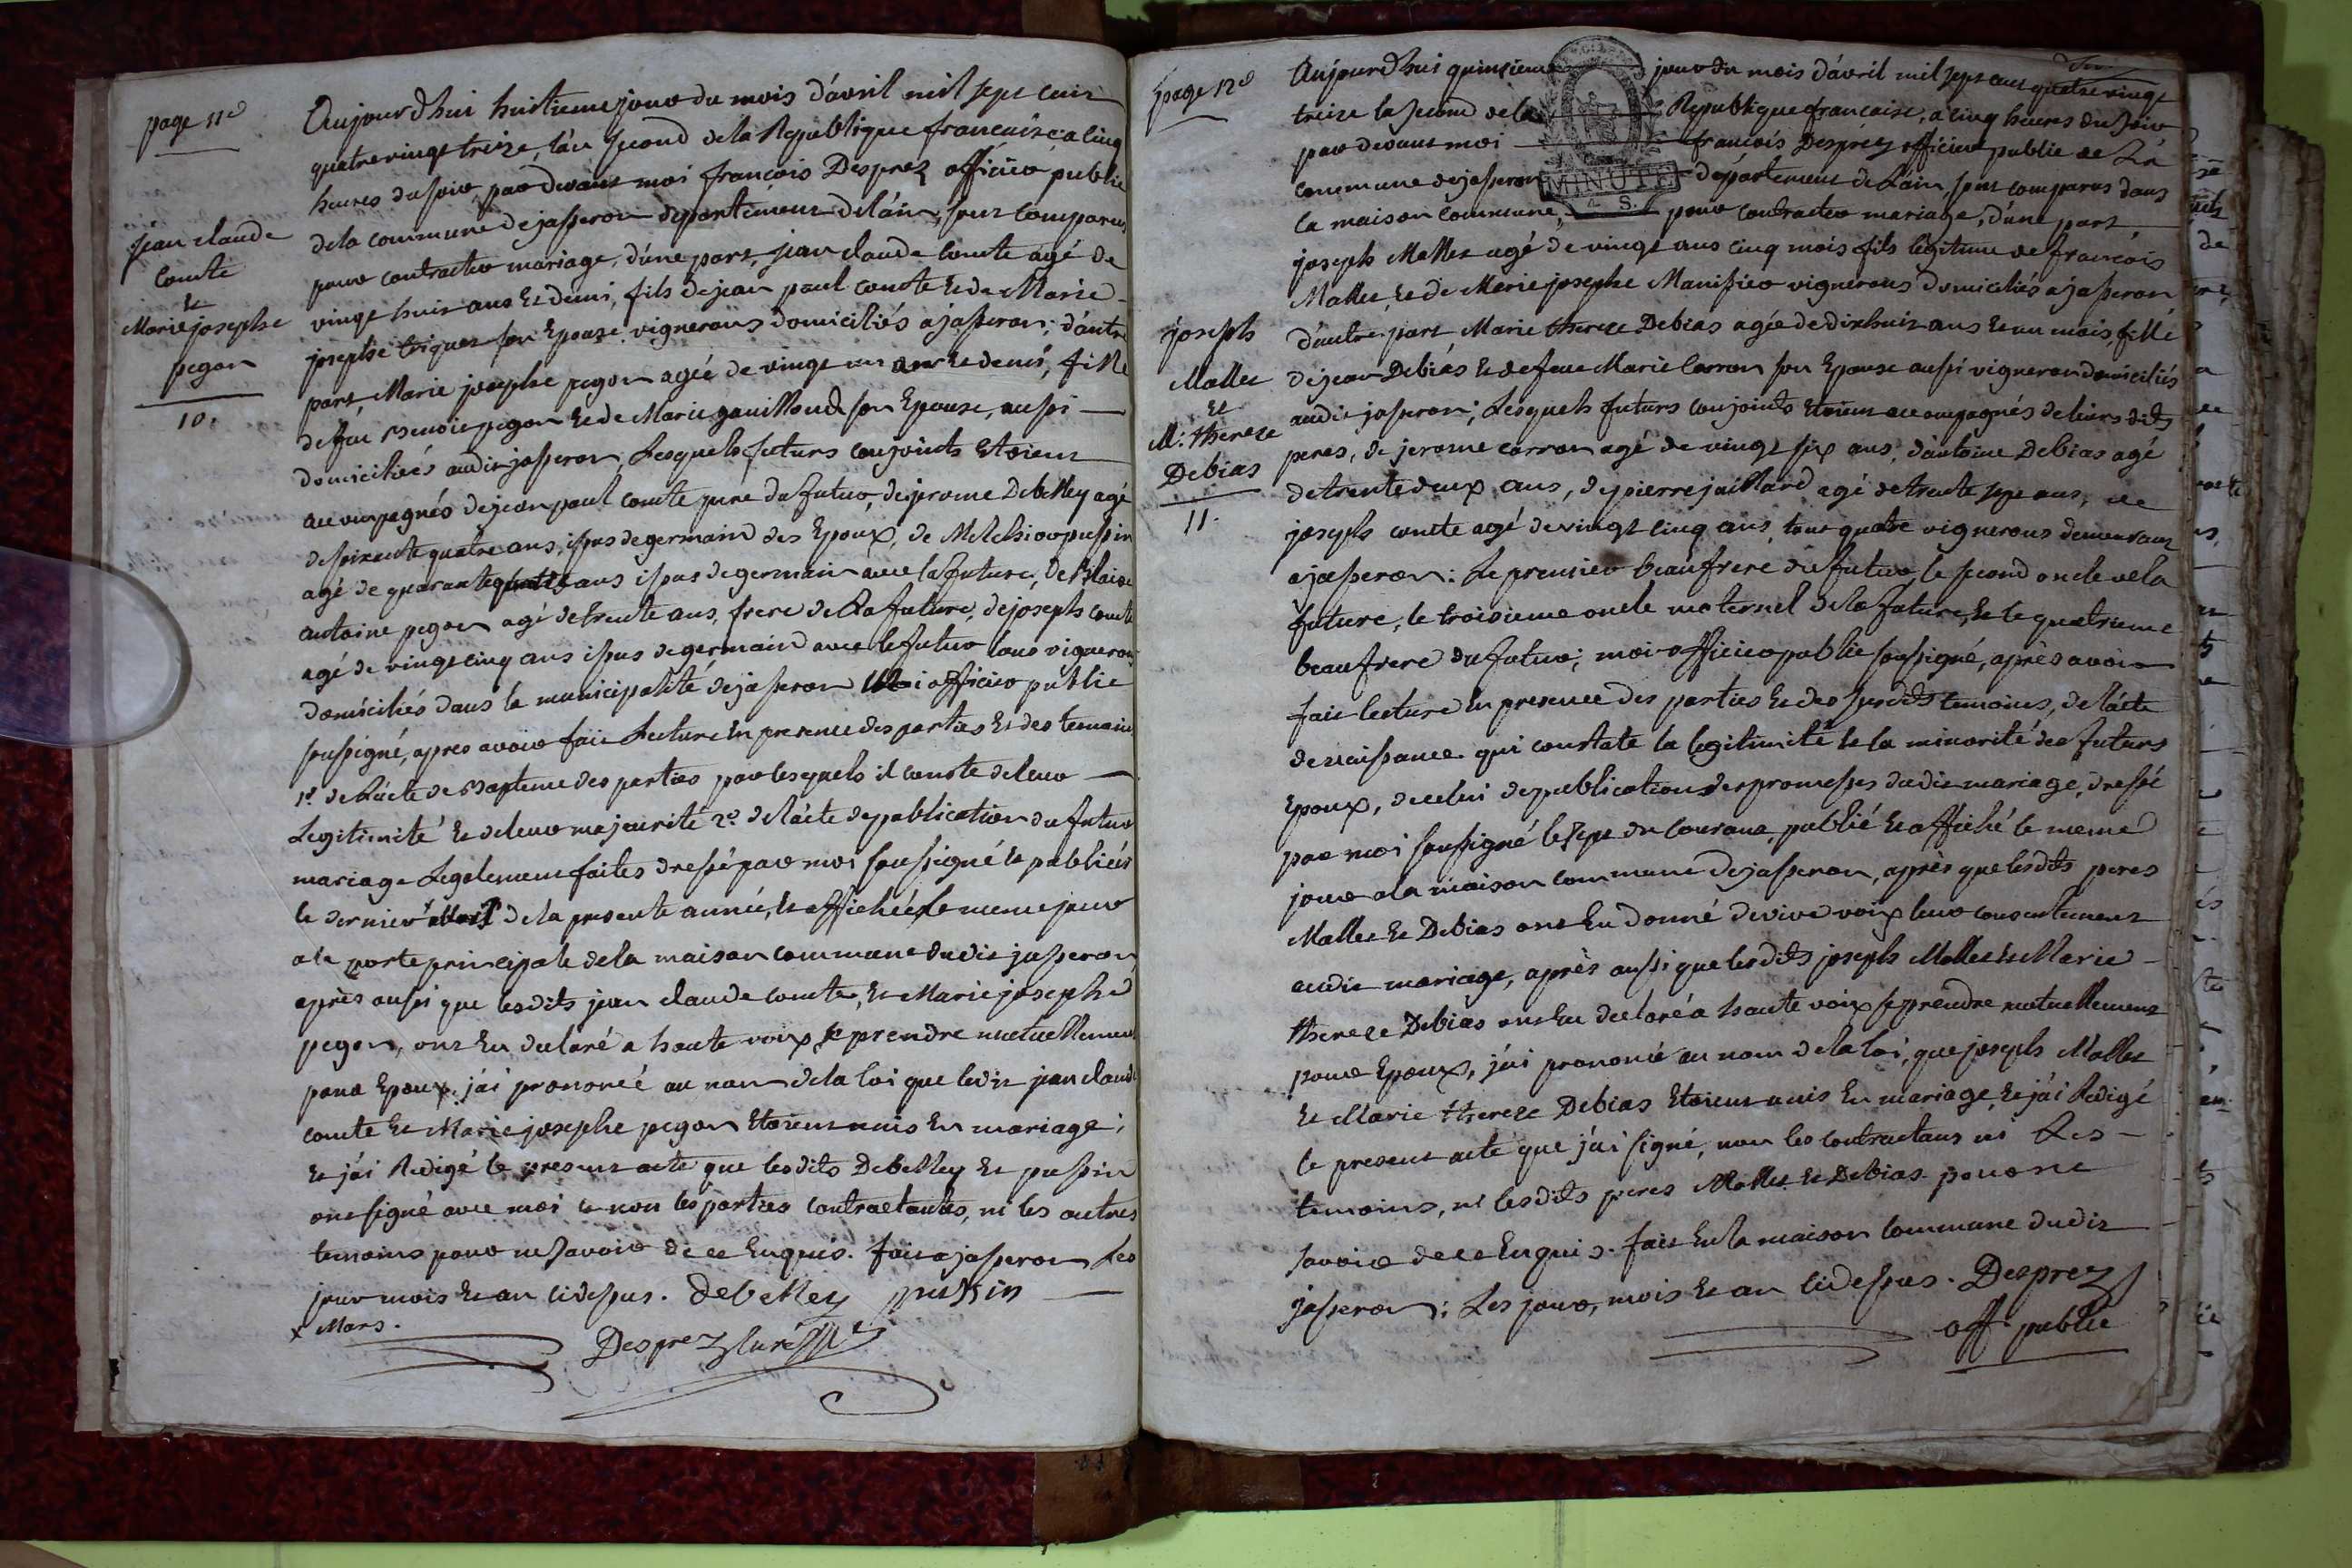 page 11e
Aujourd'hui huitieme jour du mois d'avril mil sept cent
quatre vingt treize, l'an second de la Republique francaise, a cinq
heures du soir, par devant moi françois Desprez officier public
de la commune de jasseron departement de l'ain, sont comparus
pour contracter mariage, d'une part, jean claude comte agé de
vingt huit ans et demi, fils de jean paul comte et de Marie
josephe son Epouse vignerons domiciliés a jasseron; d'autre
part, Marie josephe pegon agée de vingt un ans et demi, fille
de feu Benoit pegon et de Marie gauillond son Epouse, aussi
domiciliés audit jasseron, Lesquels futurs conjoints Etoient
accompagnés de jean paul comte pere du futur, de jerome Debelley agé
de soixante quatre ans, issus de germain des Epoux, de Melchior pussin
agé de quarante ans issus de germain avec la future, de Blaise
antoine pegon agé de trente ans, frere de la future, de joseph comte
agé de vingt cinq ans issus de germain avec le futur tous vignerons
domiciliés dans la municipalité de jasseron Moi officier public
soussigné, apres avoir fait Lecture En presence des parties et des temoins
1º. de l'acte de Bapteme des parties par lesquels il conste de leur
Legitimité et de leur majeurité 2º. de l'acte de publication du futur
mariage Legalement faites dressé par moi soussigné et publiées
le dernier de la presente année, et affichée le meme jour
a la porte principale de la maison commune dudit jasseron,
après aussi que lesdits jean claude comte, et Marie josephe
pegon, ont Eu declaré a haute voix se prendre mutuellement
pour Epoux. j'ai prononcé au nom de la loi que ledit jean claude
comte et Marie josephe pegon Etoient unis En mariage;
et j'ai Redigé le present acte que lesdits Debelley et pussin
ont signé avec moi et non les parties contractantes, ni les autres
temoins pour ne savoir de ce Enquis. fait a jasseron Les
jour mois et an cidessus. debelley pussin
x Mars.
Desprez curé
jean claude
comte
et
Marie josephe
pegon
10.
page 12e
Aujourd'hui quinzieme jour du mois d'avril mil sept cent quatre vingt
treize la second de la Republique francaise, a cinq heures du soir
par devant moi françois Desprez officier public de la
commune de jasseron departement de l'ain, sont comparus dans
la maison commune, pour contracter mariage, d'une part,
joseph Mallet agé de vingt ans cinq mois fils legitime de françois
Mallet, et de Marie josephe Manifier vignerons domiciliés a jasseron
d'autre part Marie therese Debias agée de dix huit ans et un mois, fille
de jean Debias et de feue Marie Carron son Epouse aussi vigneron domiciliés
audit jasseron; Lesquels futurs conjoints Etoient accompagnés de leurs dits
peres, de jerome carron agé de vingt six ans, d'antoine Debias agé
de trente deux ans, de pierre jaillard agé de trente sept ans, de
joseph comte agé de vingt cinq ans, tous quatre vignerons demeurant
a jasseron: Le premier beaufrere du futur, le second oncle de la
future, le troisieme oncle maternel de la future, et le quatrieme
beaufrere du futur; moi officier public soussigné, après avoir
fait lecture En presence des parties et des susdits temoins, de l'acte
de naissance qui constate la legitimité et la minorité des futurs
Epoux, de celui de publication des promesses dudit mariage, dressé
par moi soussigné le sept du courant, publié et affiché le meme
jour a la maison commune de jasseron, après que lesdits peres
Mallet et Debias ont Eu donné de vive voix leur consentement
audit mariage, après aussi que lesdits joseph Mallet et Marie
therese Debias ont Eu declaré a haute voix se prendre mutuellement
pour Epoux, j'ai prononcé au nom de la loi, que joseph Mallet
et Marie therese Debias Etoient unis En mariage, et j'ai Redigé
le present acte que j'ai signé, non les contractans ni Les
temoins, ni lesdits peres Mallet et Debias pour ne
savoir de ce Enquis. fait En la maison commune dudit
jasseron: Les jour, mois et an cidessus. Desprez
off. public
joseph
Mallet
et
M. therese
Debias
11.
MINUTE